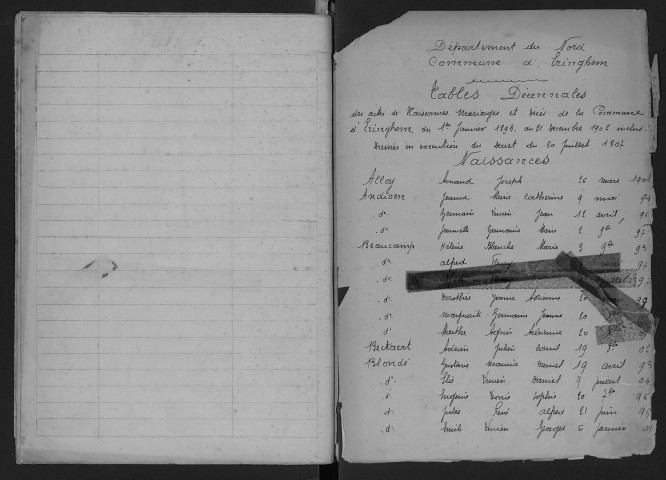 Département du Nord
Commune d'Eringhem
Tables Décennales
des actes de Naissances, Mariages et Décès de la Commune
d'Eringhem du 1er Janvier 1893 au 31 Décembre 1902 inclus.
Dressées en exécution du décret du 20 Juillet 1807
Naissances
Alloy Amand Joseph 26 mars 1901
Andioen Jeanne Marie Catherine 9 mai 94
d° Germain Lucien Jean 12 avril 96
d° Jeannette Germaine Marie 2 9bre 97
Beaucamp Hélène Blanche Marie 3 9bre 93
d° Alfred
d°
d° Dorothée Jeanne Adrienne 20 99
d° Marguerite Germaine Jeanne 20
d° Marthe Adrienne 20
Beckaert Adrien Julien Cornil 19 02
Blondé Gustave Maurice Daniel 19 avril 93
d° Elie Lucien Daniel 9 juillet 94
d° Eugénie Sophie 20 7bre 96
d° Jules René Alfred 21 juin
d° Emile Lucien Georges 6 janvier 01